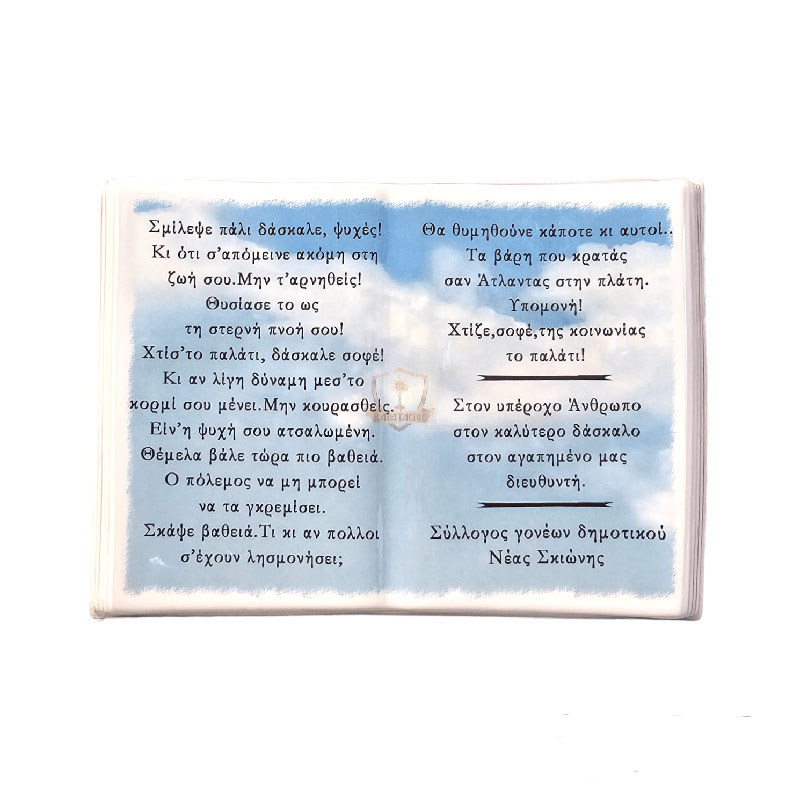 Σμίλεψε πάλι δάσκαλε, ψυχές!
Κι ότι σ'απόμεινε ακόμη στη
ζωή σου.Μην τ'αρνηθείς!
Θυσίασε το ως
τη στερνή πνοή σου!
Χτίσ'το παλάτι, δάσκαλε σοφέ!
Κι αν λίγη δύναμη μεσ'το
κορμί σου μένει.Μην κουρασθείς.
Είν'η ψυχή σου ατσαλωμένη.
Θέμελα βάλε τώρα πιο βαθειά.
Ο πόλεμος να μη μπορεί
να τα γκρεμίσει.
Σκάψε βαθειά.Τι κι αν πολλοι
σ'έχουν λησμονήσει;
Θα θυμηθούνε κάποτε κι αυτοί..
Τα βάρη που κρατάς
σαν Άτλαντας στην πλάτη.
Υπομονή!
Χτίζε,σοφέ,της κοινωνίας
το παλάτι!
Στον υπέροχο Άνθρωπο
στον καλύτερο δάσκαλο
στον αγαπημένο μας
διευθυντή.
Σύλλογος γονέων δημοτικού
Νέας Σκιώνης